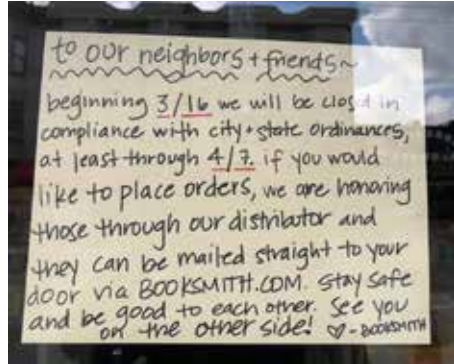 to our neighbors + friends~
beginning 3/16 we will be closed in
compliance with city + state ordinances,
at least through 4/7. if you would
like to place orders, we are honoring
those through our distributor and
they can be mailed straight to your
door via BOOKSMITH.COM. stay safe
and be good to each other. see you
on the other side! ♡-BOOKSMITH